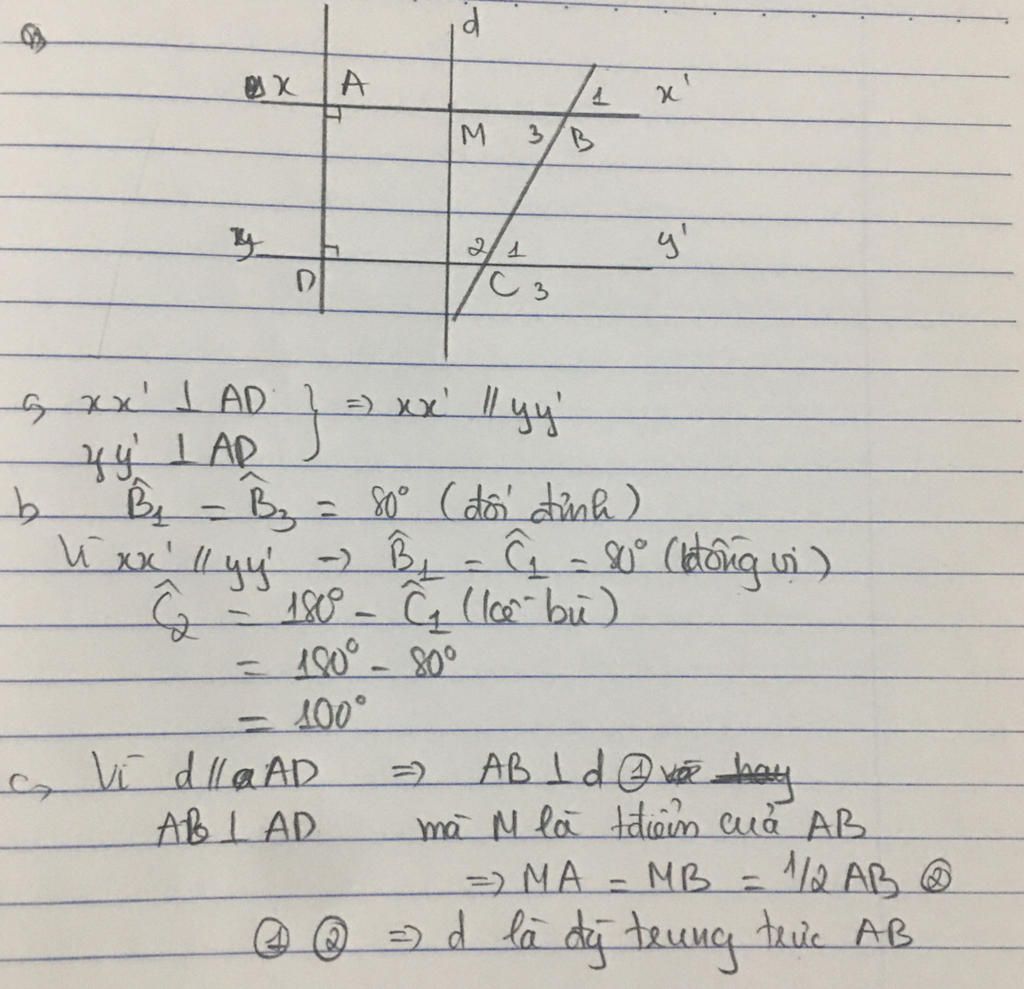 d
x A 1 x'
M 3 B
y 2 1 y'
D C 3
a, xx' ⊥ AD } => xx' // yy'
yy' ⊥ AD
b B̂₁ = B̂₃ = 80° (đối đỉnh)
Vì xx' // yy' → B̂₁ = Ĉ₁ = 80° (đồng vị)
Ĉ₂ = 180° - Ĉ₁ (kề bù)
= 180° - 80°
= 100°
c, Vì d // AD => AB ⊥ d ①
AB ⊥ AD mà M là tđiểm của AB
=> MA = MB = 1/2 AB ②
① ② => d là đg trung trực AB